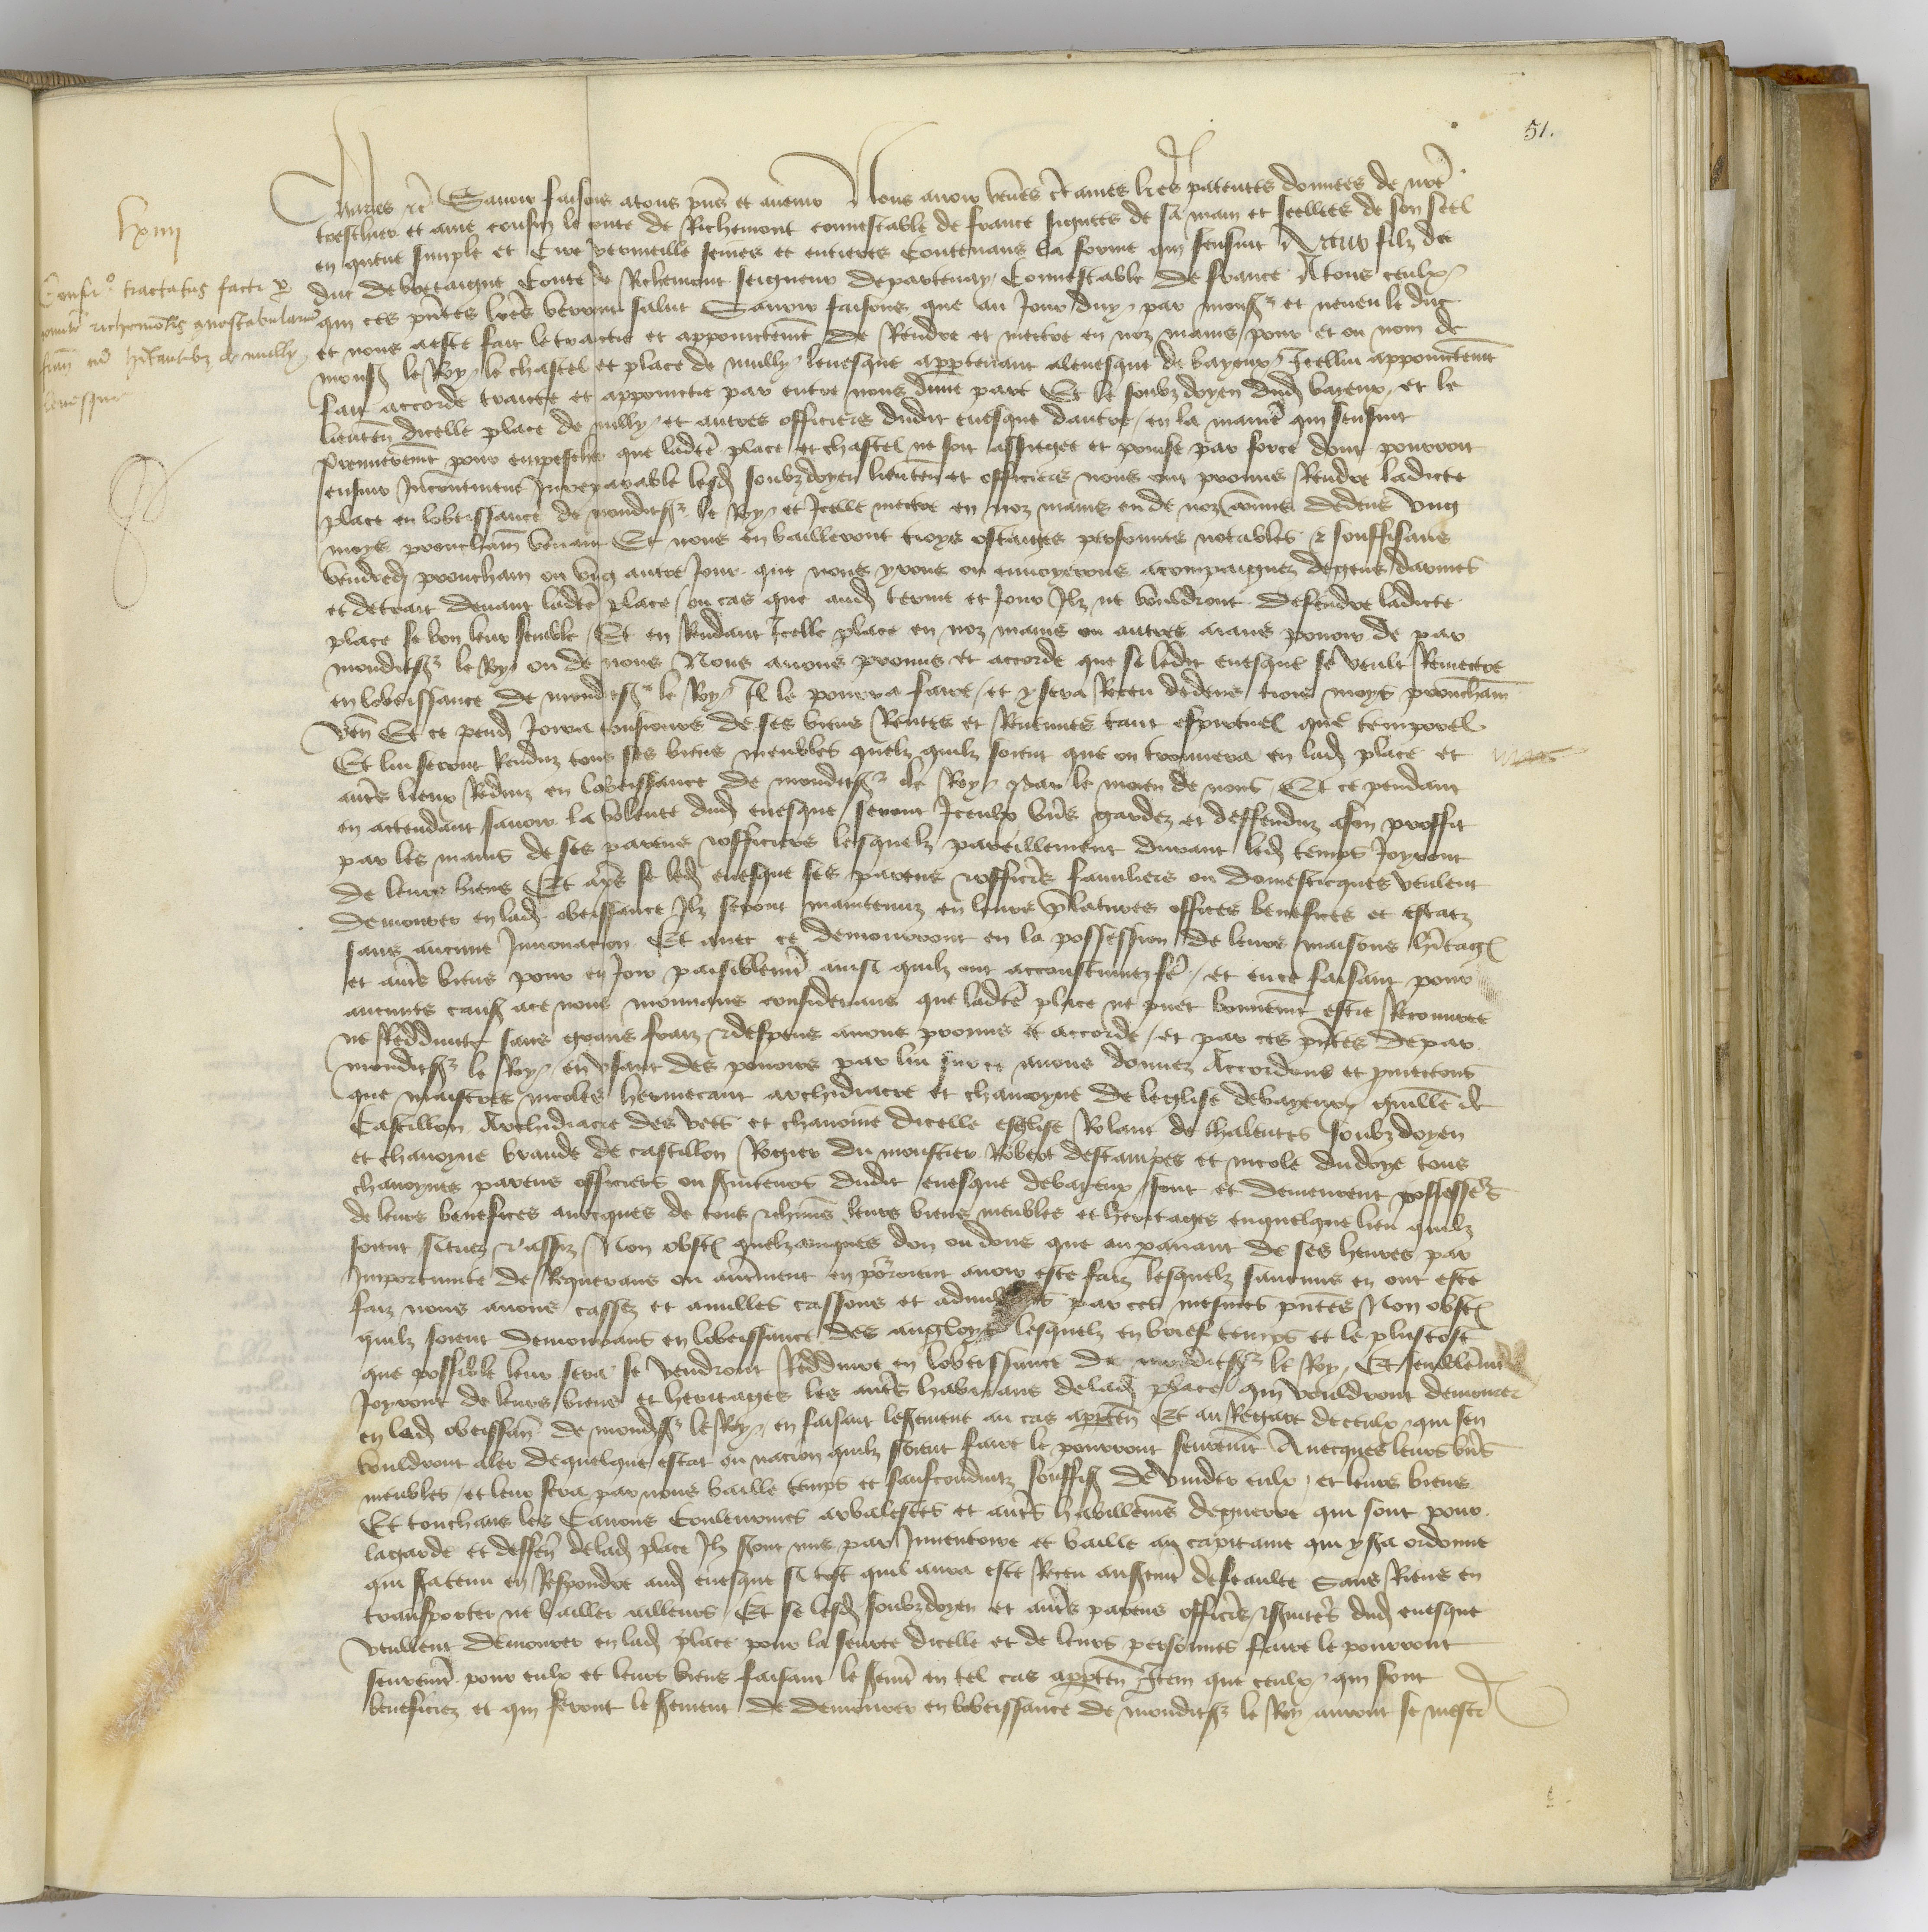 51.
lxiiii
Confir° tractatus facti p
comitē richemōtis ꝯnestabulariū
franc̄ cū hītantibz de nully
leuesque
Charles ⁊c̄ Sauoir faisons a tous p̄ns et auenir Nous auoir veues c̄taines lr̄es patentes donnees de nr̄e
treschier et ame cousin le conte de Richemont connestable de france signees de sa main et seellees de son seel
en queue simple et Cire vermeille seines et entieres Contenans la forme qui sensuit Artur filz de
duc de bretaigne Conte de Richemont seigneur de partenay Connestable de france A tous ceulx
qui ces p̄ntes lr̄es verront salut Sauoir faisons que au Jour duy par monsr et neueu le duc
et nous a este fait le traictie et appoinctemēt de Rendre et mectre en noz mains pour et ou nom de
monsr le Roy le chastel et place de nully leuesque appartenant a leuesque de bayeux Icellui appoinctemēt
fait accorde traictie et appoinctie par entre nous dune part Et le soubz doyen dud bayeux et le
lieuten̄ dicelle place de nully et autres officiers dudit euesque dautre en la manier̄ qui sensuit
Premierement pour empescher que ladte place et chastel ne soit assiegee et prinse par force dont pourroit
ensuir Inconuenient Irreparable lesd soubzdoyen lieuten̄ et officiers nous ont promis Rendre ladicte
place en lobeissance de monditsr le Roy et Icelle mectre en noz mains ou de noz cōmis dedens vng
moys prouchain venant Et nous en bailleront troys ostaiges personnes notables ⁊ souffisans
vendredj prouchain ou vng autre Jour que nous yrons ou enuoyerons acompaignez de gens darmes
et de trait deuant ladte place ou cas que aud terme et Jour Ilz ne vouldront defendre ladicte
place se bon leur semble Et en Rendant Icelle place en noz mains ou autres aians pouoir de par
monditsr le Roy ou de nous Nous auons promis et accorde que se ledit euesque se veult Remectre
en lobeissance de monditsr le Roy Il le pourra faire et y sera Receu dedens trois moys prouchain
ven̄ Et ce pend Joira tousiours de ses biens Rentes et Reuenues tant espirituel que temporel
Et lui seront Renduz tous ses biens meubles quelz quilz soient que on trouuera en lad place et
aut̄s lieux Reduiz en lobeissance de monditsr le Roy par le moien de nous Et ce pendant
en actendant sauoir la volente dud euesque seront Iceulx biēs gardez et deffenduz a son proffit
par les mains de ses parens ⁊ officiers lesquelz pareillement durant led temps Joyront
de leurs biens Et ap̄s se led euesque ses parens ⁊ officiers familiers ou domesticques veulent
demourer en lad obeissance Ilz seront maintenuz en leurs p̄latures offices benefices et estatz
sans aucune Innouacion Et auec ce demourront en la possession de leurs maisons hr̄itages
et aut̄s biens pour en Joir paisiblemēt ainsi quilz ont accoustumez f̄e et en ce faisant pour
aucunes causes a ce nous mouuans considerans que ladte place ne puet bonnemēt estre Recouuree
ne Redduite sans grans fraiz ⁊ despens auons promis et accorde et par ces p̄ntes de par
monditsr le Roy en vsant des pouoirs par lui sur ce a nous donnez Accordons et promectons
que maistres nicoles hermecant archidiacre et chanoyne de leglise de bayeux guille de
Castillon Archidiacre des vees et chanoine dicelle eglise Rolant de thalentes soubz doyen
et chanoyne brande de castillon Rogier du monstier Robert destampes et nicole du doye tous
chanoynes parens officiers ou s̄uiteurs dudit euesque de bayeux sont et demeurent possessr̄s
de leurs benefices auecques de tous ⁊ chūns leurs biens meubles et heritages en quelque lieu quilz
soient situez ⁊ assiz Non obst̄ quelzconques don ou dons que au parauant de ses heures par
Importunite de Requerans ou autrement en pourroient auoir este faiz lesquelz saucuns en ont este
faiz nous auons cassez et anullez cassons et adnullons par ces mesmes p̄ntes Non obst̄
quilz soient demourans en lobeissance des angloys lesquelz en brief temps et le plustost
que possible leur sera se vendront Redduire en lobeissance de monditsr le Roy Et semblemēt
Joyront de leurs biens et heritages les aut̄s habitans de lad place qui vouldront demourer
en lad obeissan̄ de mondsr le Roy en faisant le s̄ement au cas apparten̄ Et au Regart de ceulx qui sen
vouldront aler de quelque estat ou nacion quilz soient faire le pourront seuremēt Auecques leurs biēs
meubles et leur sera par nous baille temps et saufconduitz souffis̄ de vuider eulx et leurs biens
Et touchans les Canons Couleurines arbalestes et aut̄s habillemēs de guerre qui sont pour
la garde et deffen̄ de lad place Ilz s̄ont mis par Inuentoire et baille au capitaine qui y s̄a ordonne
qui s̄a tenu en Respondre aud euesque si tost quil aura este Receu au s̄emēt de feaulte Sans Riens en
transporter ne bailler ailleurs Et se lesd soubzdoyen et aut̄s parens officiers ⁊ s̄uiteurs dud euesque
veullent demourer en lad place pour la seurte dicelle et de leurs personnes faire le pourront
seuremēt pour eulx et leurs biens faisant le s̄emēt en tel cas apparten̄ Item que ceulx qui sont
beneficiez et qui feront le s̄ement de demourer en lobeissance de monditsr le Roy auront se mestr̄